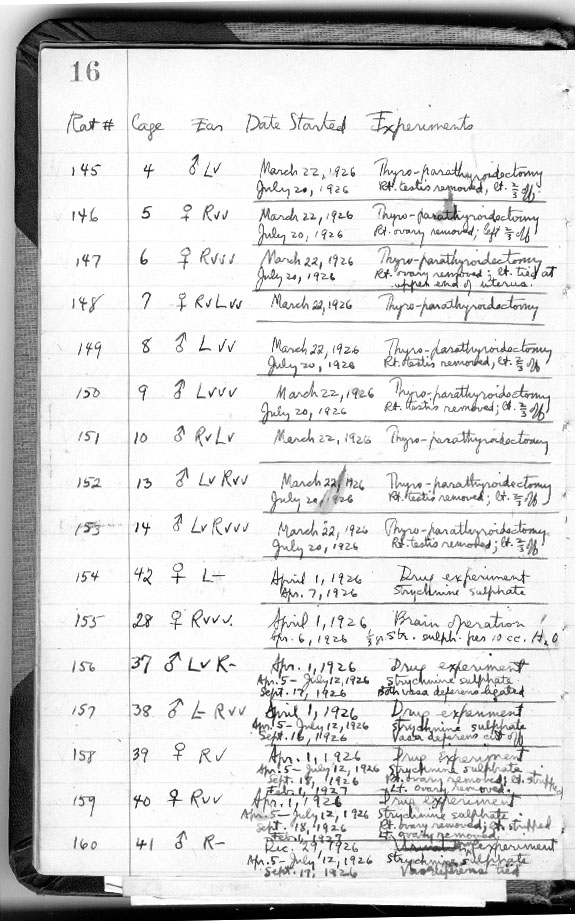 16
Rat # Cage Ear Date Started Experiments
145 4 ♂ Lv March 22, 1926 Thyro-parathyroidectomy
July 20, 1926 Rt. testis removed, lt. 2/3 off
146 5 ♀ Rvv March 22, 1926 Thyro-parathyroidectomy
July 20, 1926 Rt. ovary removed; left 2/3 off
147 6 ♀ Rvvv March 22, 1926 Thyro-parathyroidectomy
July 20, 1926 Rt. ovary removed; lt. tied at
upper end of uterus.
148 7 ♀ RvLvv March 22, 1926 Thyro-parathyroidectomy
149 8 ♂ Lvv March 22, 1926 Thyro-parathyroidectomy
July 20, 1926 Rt. testis removed, lt. 2/3 off
150 9 ♂ Lvvv March 22, 1926 Thyro-parathyroidectomy
July 20, 1926 Rt. testis removed; lt. 2/3 off
151 10 ♂ RvLv March 22, 1926 Thyro-parathyroidectomy
152 13 ♂ Lv Rvv March 22, 1926 Thyro-parathyroidectomy
July 20, 1926 Rt. testis removed; lt. 2/3 off
153 14 ♂ Lv Rvvv March 22, 1926 Thyro-parathyroidectomy
July 20, 1926 Rt. testis removed; lt. 2/3 off
154 42 ♀ L- April 1, 1926 Drug experiment
Apr. 7, 1926 Strychnine sulphate
155 28 ♀ Rvvv. April 1, 1926 Brain operation
Apr. 6, 1926 gr. Str. sulph. per 10 cc. H2O
156 37 ♂ Lv R- Apr. 1, 1926 Drug experiment
Apr. 5- July 12, 1926 Strychnine sulphate
Sept. 17, 1926 Both vasa deferens ligated
157 38 ♂ L- Rvv April 1, 1926 Drug experiment
Apr. 5- July 12, 1926 Strychnine sulphate
Sept. 16, 1926 Vasa deferens cut off
158 39 ♀ Rv Apr. 1, 1926 Drug experiment
Apr. 5- July 12, 1926 Strychnine sulphate
Sept. 18, 1926 Rt. ovary removed; lt. stripped
Feb. 1, 1927 Lt. ovary removed.
159 40 ♀ Rvv Apr. 1, 1926 Drug experiment
Apr. 5- July 12, 1926 Strychnine sulphate
Sept. 18, 1926 Rt. ovary removed; lt. stripped
1927 Lt. ovary removed.
160 41 ♂ R- Dec. 29, 1926 experiment
Apr. 5- July 12, 1926 Strychnine sulphate
Sept. 17, 1926 Vas deferens tied